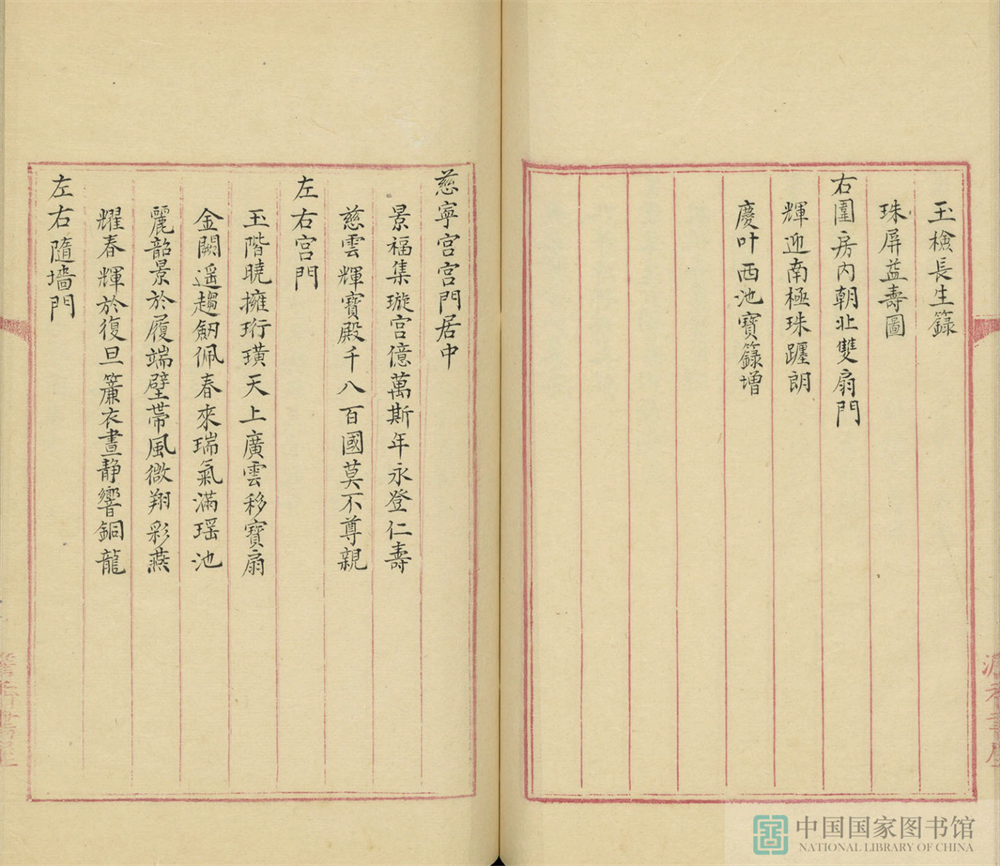 玉檢長生籙
珠屏益壽圖
右圍房内朝北雙扇門
輝迎南極珠躔朗
慶叶西池寶籙增
慈寧宮宮門居中
景福集璇宮億萬斯年永登仁壽
慈雲輝寶殿千八百國莫不尊親
左右宮門
玉階曉擁珩璜天上廣雲移寶扇
金闕遥趨劒佩春來瑞氣滿瑶池
麗韶景於履端壁帶風微翔彩燕
耀春輝於復旦簾衣晝静響銅龍
左右隨墻門
中国国家图书馆
NATIONAL LIBRARY OF CHINA